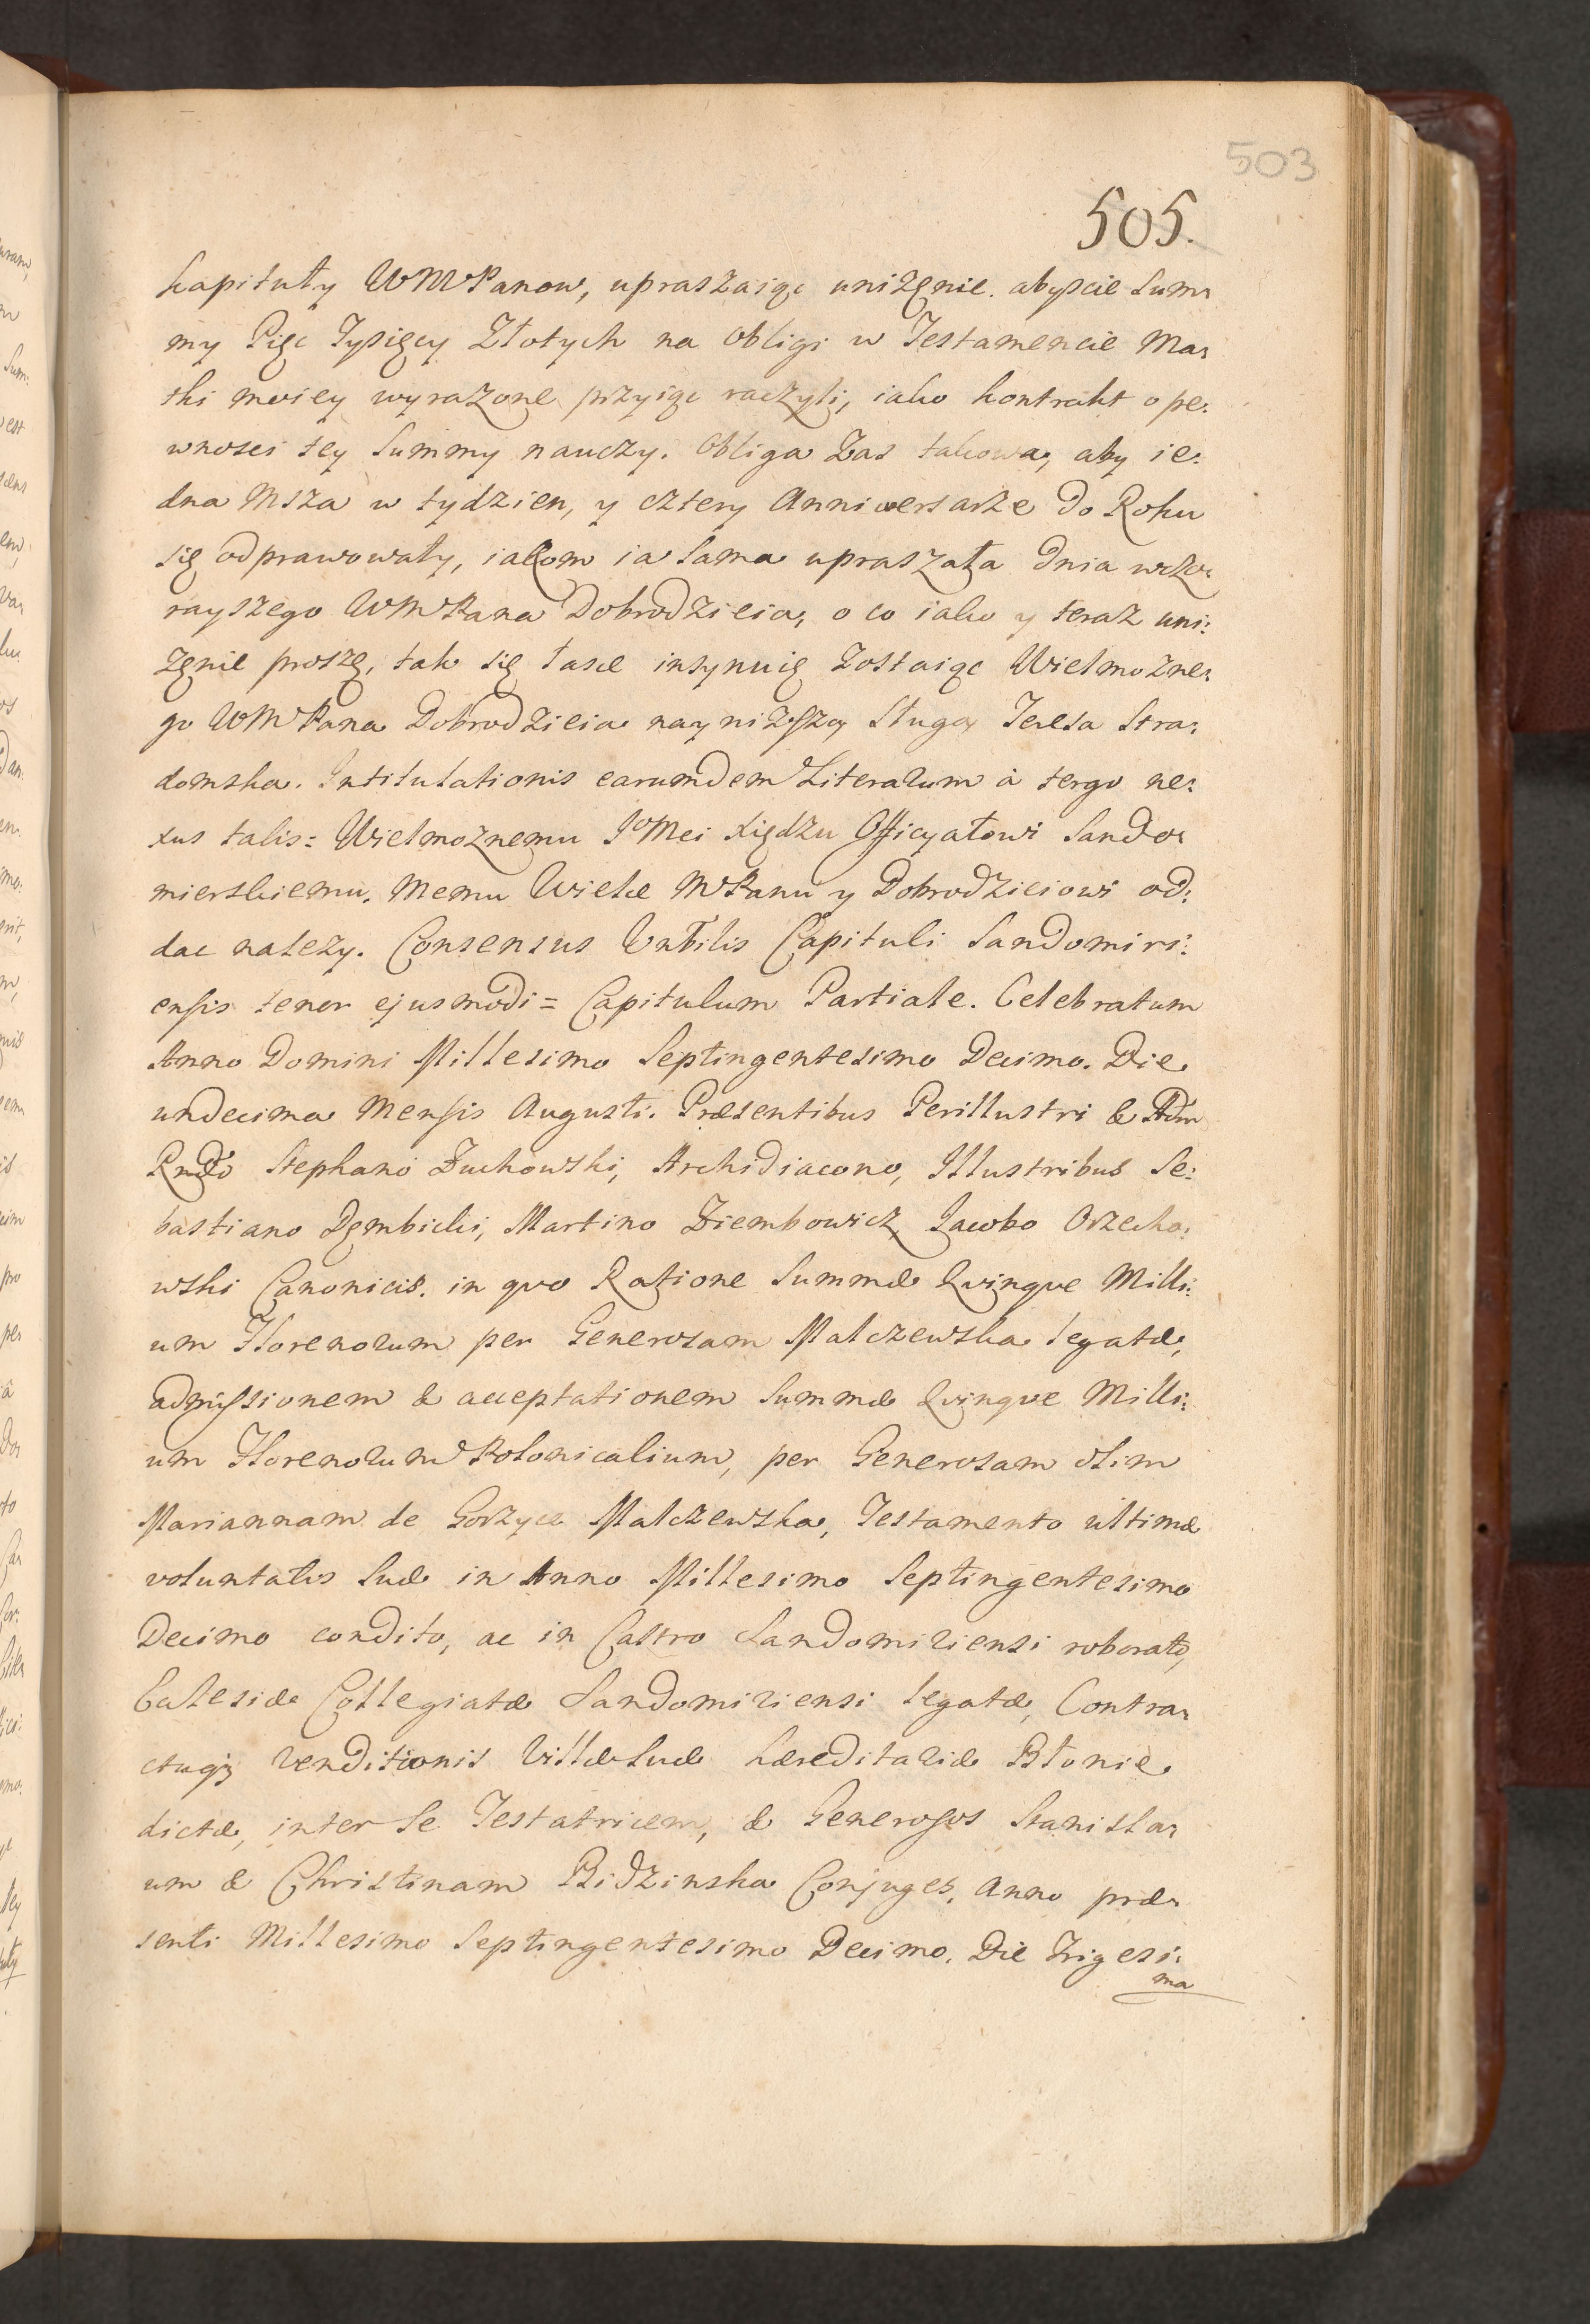 503
505.
kapituły WMPanow, upraszaiąc uniżęnie. abyscie Sum:
my Pięc Tysięcy Złotych na obligi w Testamencie Ma:
tki moiey wyrażone przyiąc raczyli, iako kontrakt o pe:
wnosci tey Summy nauczy. obliga Zas takowa, aby ie:
dna Msza w tydzien, y cztery Anniwersarze do Roku
się odprawowały, iakom ia sama upraszała dnia wczo:
rayszego WMPana Dobrodzieia, o co iako y teraz uni:
żęnie proszę, tak się łasce insynuię Zostaiąc Wielmożne:
go WMPana Dobrodzieia nayniższą Sługą Teresa Stra:
domska. Intitulationis earumdem Literarum à tergo ne:
xus talis: Wielmożnemu JoMci Xiędzu Officyałowi Sando:
mierskiemu. Memu Wielce MPanu y Dobrodzieiowi od:
dac nalezy. Consensus Vnblis Capituli Sandomiri:
ensis tenor ejusmodi = Capitulum Partiale. Celebratum
Anno Domini Millesimo Septingentesimo Decimo. Die
undecima Mensis Augusti. Præsentibus Perillustri & Adm
Rndo Stephano Żuchowski, Archidiacono, Illustribus Se:
bastiano Dęmbicki, Martino Ziembowicz Jacobo Orzecho:
wski Canonicis. in qvo Ratione Summæ Qvinqve Milli:
um Florenorum per Generosam Malczewska legatæ,
admissionem & acceptationem Summæ Qvinqve Milli:
um Florenorum Polonicalium, per Generosam olim
Mariannam de Gorzyce Malczewska, Testamento ultimæ
voluntatis Suæ in Anno Millesimo Septingentesimo
Decimo condito, ac in Castro Sandomiriensi roborato,
Ecclesiæ Collegiatæ Sandomiriensi legatæ, Contra:
ctuqz venditionis Villæ Suæ hæreditariæ Błonie
dictæ, inter Se Testatricem, & Generosos Stanisla:
um & Christinam Bidzinska Conjuges, Anno præ:
senti Millesimo Septingentesimo Decimo. Die Trigesi:
ma